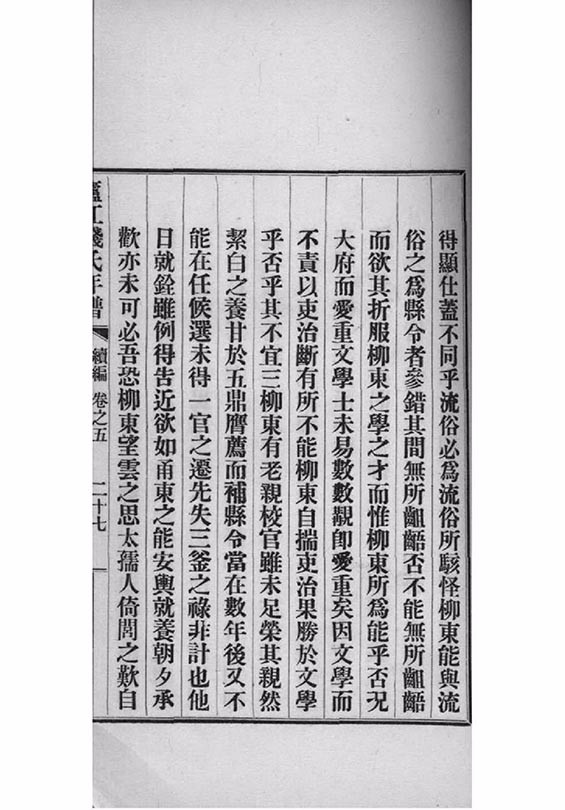 得顯仕蓋不同乎流俗必爲流俗所駭怪柳東能與流
俗之爲縣令者參錯其間無所齟齬否不能無所齟齬
而欲其折服柳東之學之才而惟柳東所爲能乎否况
大府而愛重文學士未易數數覯卽愛重矣因文學而
不責以吏治斷有所不能柳東自揣吏治果勝於文學
乎否乎其不宜三柳東有老親校官雖未足榮其親然
絜白之養甘於五鼎膺薦而補縣令當在數年後又不
能在任候選未得一官之遷先失三釜之祿非計也他
日就銓雖例得告近欲如甬東之能安輿就養朝夕承
歡亦未可必吾恐柳東望雲之思太孺人倚閭之歎自
廬江錢氏年譜 續編 卷之五 二十七